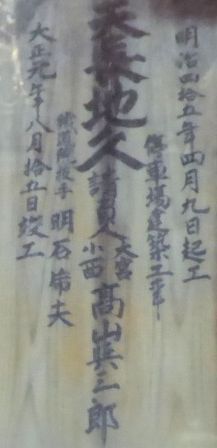 明治四拾五年四月九日起工
停車場建築工事
天長地久
請負人
大宮
小西
高山兵三郎
鐵道院技手 明石節夫
大正元年八月拾五日竣工